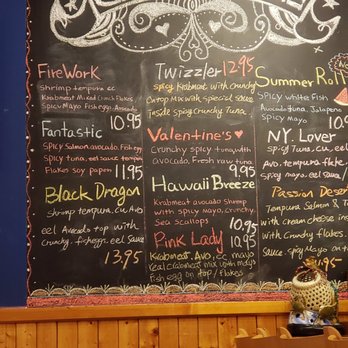 FireWork
shrimp tempura cc
Krabmeat Mixed Crunch Flakes
Spicy Mayo Fish egg Avocado
10.95
Fantastic
Spicy Salmon avocado. Fish egg
Spicy tuna, eel sauce tempura
Flakes soy paper 11.95
Black Dragon
Shrimp tempura, cu, Avo
eel Avocado top with
Crunchy, fish egg, eel Sauce
13.95
Twizzler 12.95
Spicy Krabmeat with crunchy
On top Mix with special sauce
Inside Spicy Crunchy Tuna
Valentine's
Crunchy Spicy tuna with
avocado, Fresh raw tuna
9.95
Hawaii Breeze
Krabmeat avocado Shrimp
with spicy mayo, crunchy
Sea Scallops 10.95
Pink Lady 10.95
Krabmeat, Avo, cc mayo
real Crabmeat mix with
fish egg on top / Flakes
Summer Roll
Spicy white Fish
Avocado tuna, Jalapeno
Spicy mayo
10.95
N.Y. Lover
Spicy Tuna, cu,
Avo, tempura flake
Spicy mayo, eel
Passion Desert
Tempura Salmon &
with cream cheese
with Crunchy flakes
Sauce Spicy Mayo on